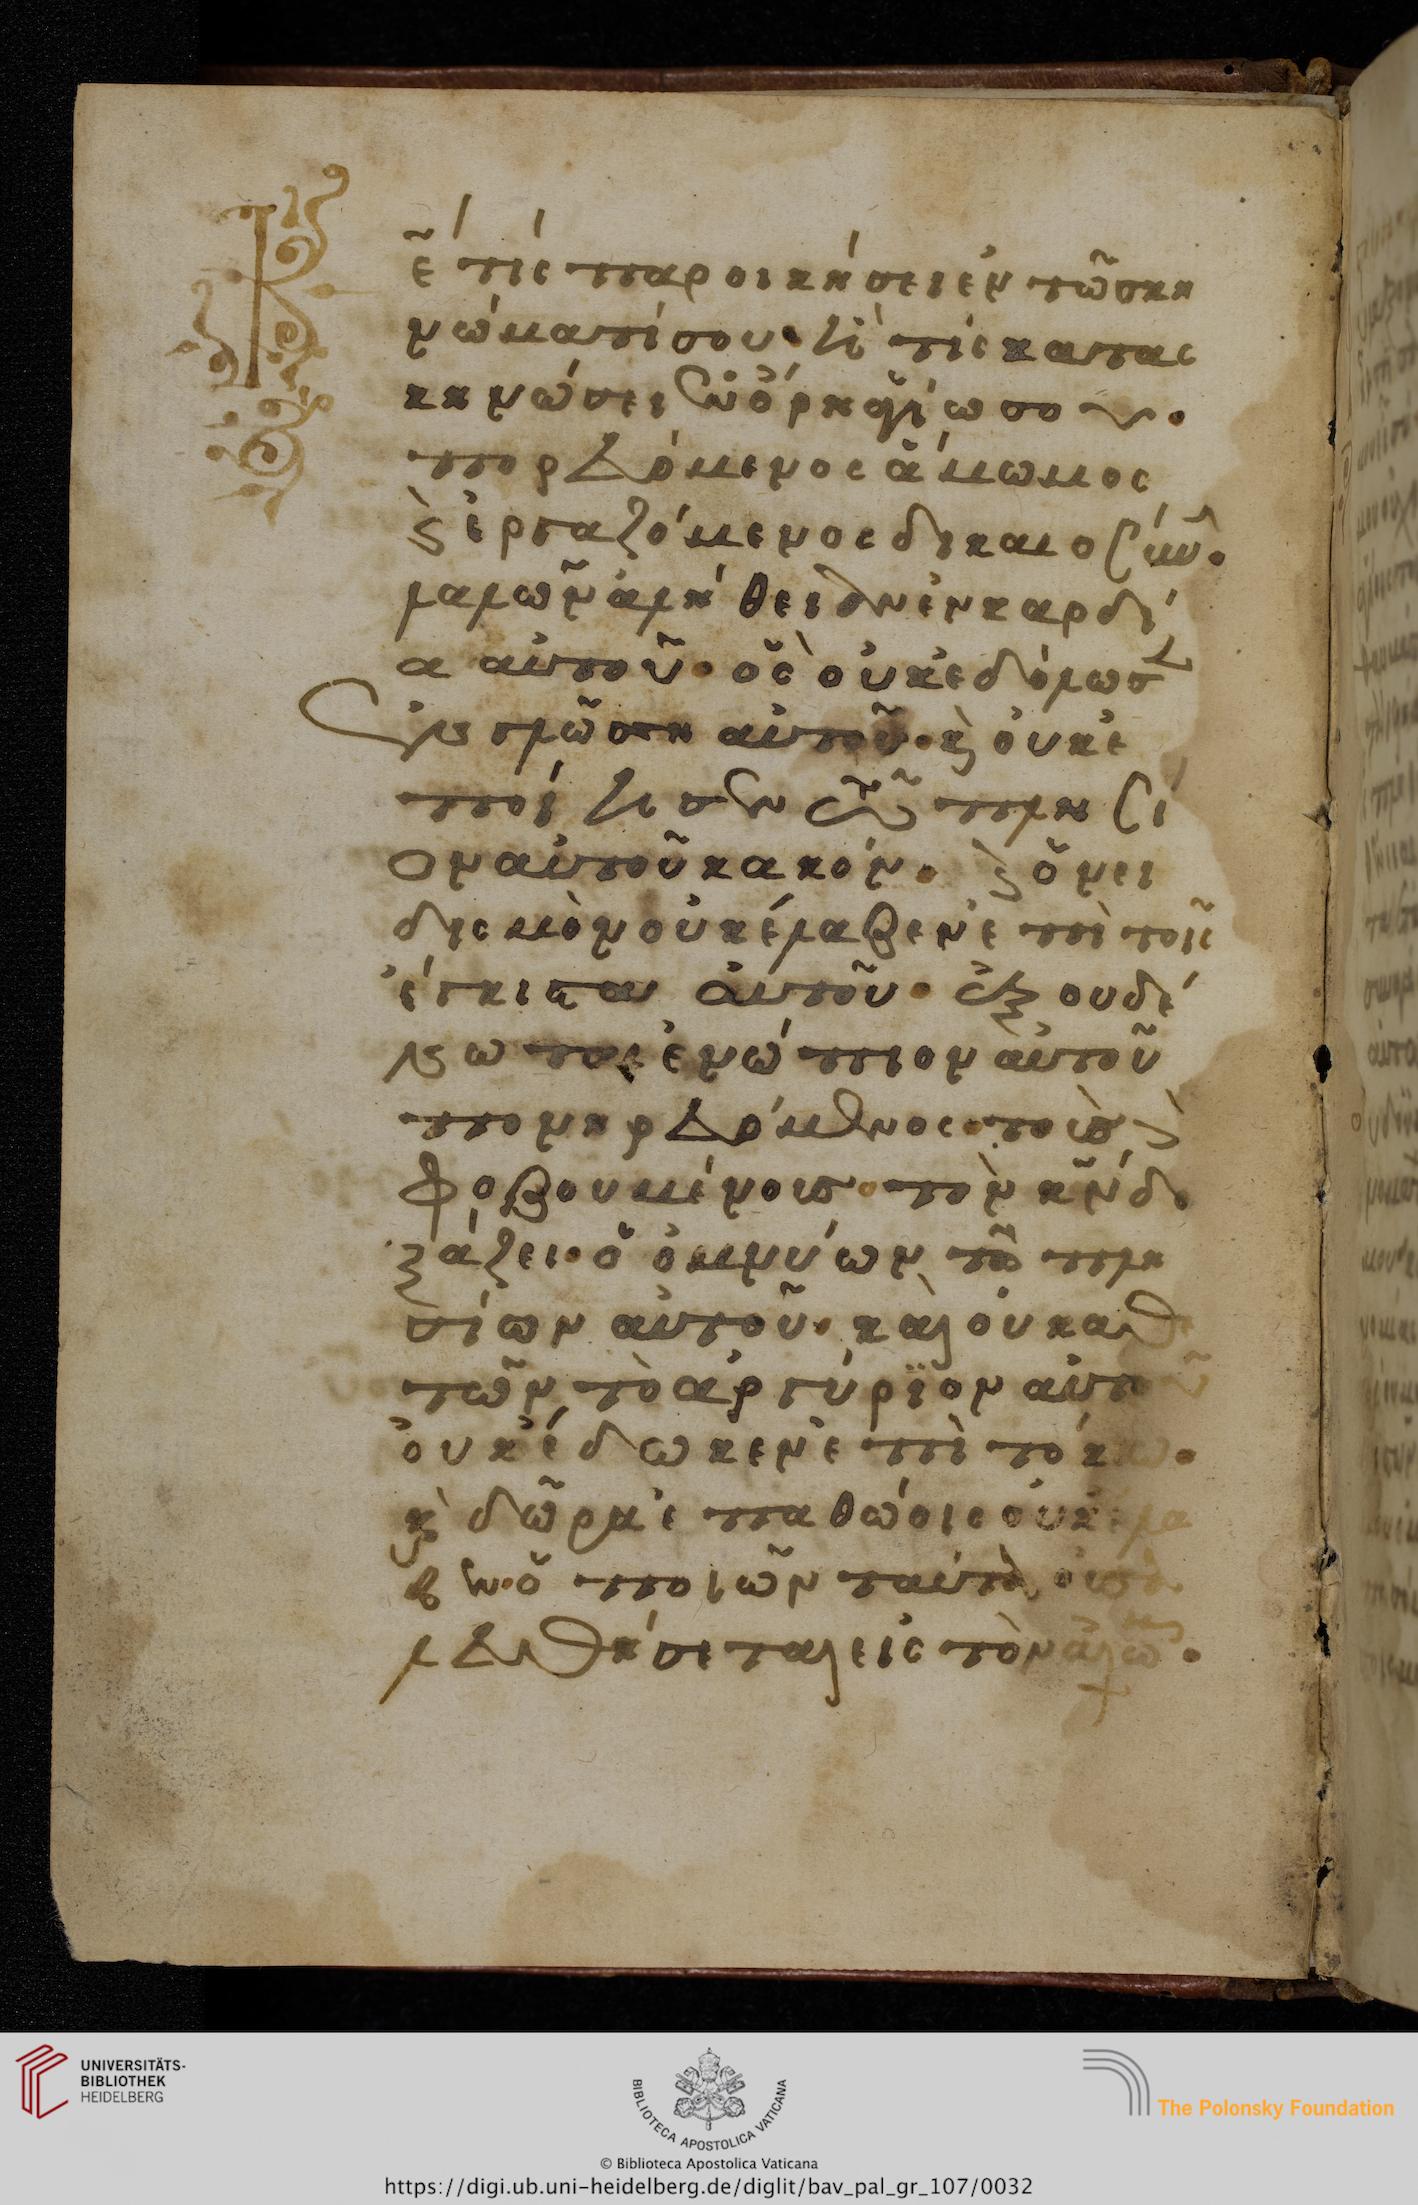 Κ
ε̃ τίς παροικήσει ἐν τῶ σκη
νώματί σου· ἢ τίς κατασ
κηνώσει ἐν ὄρει ἁγίω σου·
πορευόμενος ἄμωμος
(καὶ) ἐργαζόμενος δικαιοσύνην·
λαλῶν ἀλήθειαν ἐν καρδί
α αὐτοῦ· ὃς οὐκ ἐδόλωσεν
ἐν γλώσση αὐτοῦ· κ(αὶ) οὐκ ἐ
ποίησεν τῶ πλησί
ον αὐτοῦ κακόν· (καὶ) ὀνει
δισμὸν οὐκ ἔλαβεν ἐπὶ τοῖς
ἔγγιστα αὐτοῦ· ἐξουδέ
νωται ἐνώπιον αὐτοῦ
πονηρευόμενος· τοὺς
φοβουμένους τὸν κ̅ν̅ δο
ξάζει· ὁ ὀμνύων τῶ πλη
σίον αὐτοῦ· καὶ οὐκ ἀθε
τῶν τὸ ἀργύριον αὐτοῦ
οὐκ ἔδωκεν ἐπὶ τόκω·
κ(αὶ) δῶρα ἐπ' ἀθώοις οὐκ ἔλα
βεν· ὁ ποιῶν ταῦτα οὐ σα
λευθήσεται εἰς τὸν αἰῶνα·
UNIVERSITÄTS-
BIBLIOTHEK
HEIDELBERG
BIBLIOTECA APOSTOLICA VATICANA
The Polonsky Foundation
© Biblioteca Apostolica Vaticana
https://digi.ub.uni-heidelberg.de/diglit/bav_pal_gr_107/0032